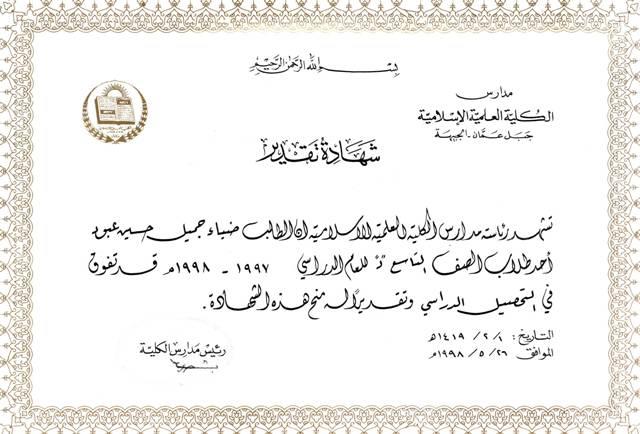 بسم الله الرحمن الرحيم
مدارس
الكلية العلمية الإسلامية
جبل عمان - الجبيهة
شهادة تقدير
تشهد رئاسة مدارس الكلية العلمية الاسلامية ان الطالب ضياء جميل حسين عبود
أحد طلاب الصف التاسع للعام الدراسي ١٩٩٧ - ١٩٩٨م قد تفوق
في التحصيل الدراسي وتقديرًا له منح هذه الشهادة.
التاريخ: ١ / ٢ / ١٤١٩هـ
الموافق ٢٦ / ٥ / ١٩٩٨م
رئيس مدارس الكلية